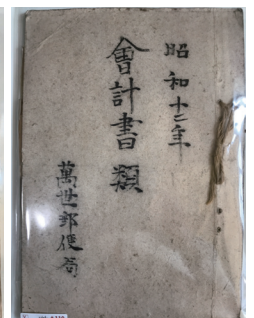 昭和十二年
會計書類
萬世郵便局